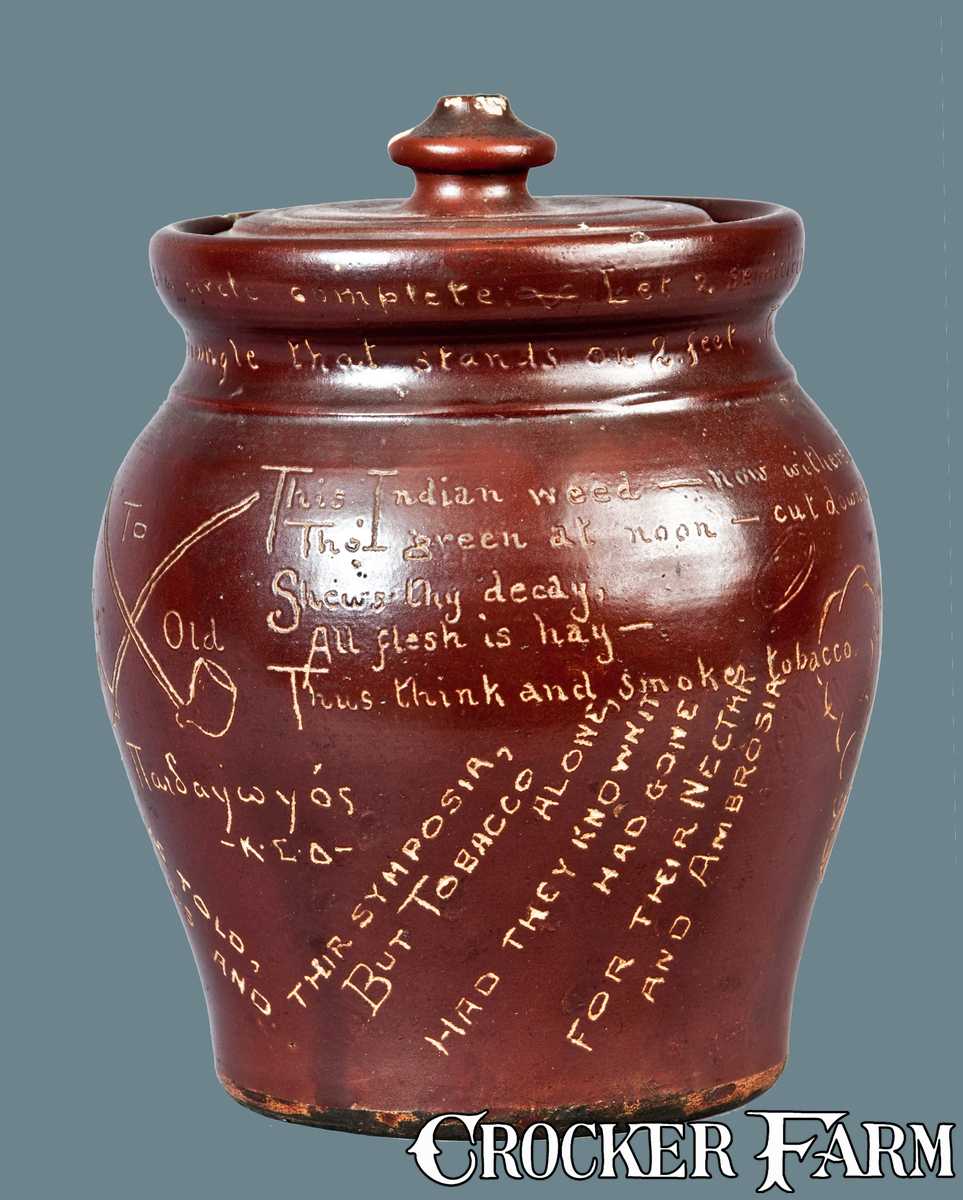 circle complete Let 2 semicir
angle that stands on 2 feet
This Indian weed — now withere
Tho' green at noon — cut down
Shews thy decay,
All flesh is hay —
Thus think and smoke tobacco.
To
Old
Παιδαγωγός
-Κ·Σ·Δ-
TOLD,
AND
THIR SYMPOSIA,
BUT TOBACCO
ALONE,
HAD THEY KNOWN IT
HAD GONE
FOR THEIR NECTAR
AND AMBROSIA
CROCKER FARM